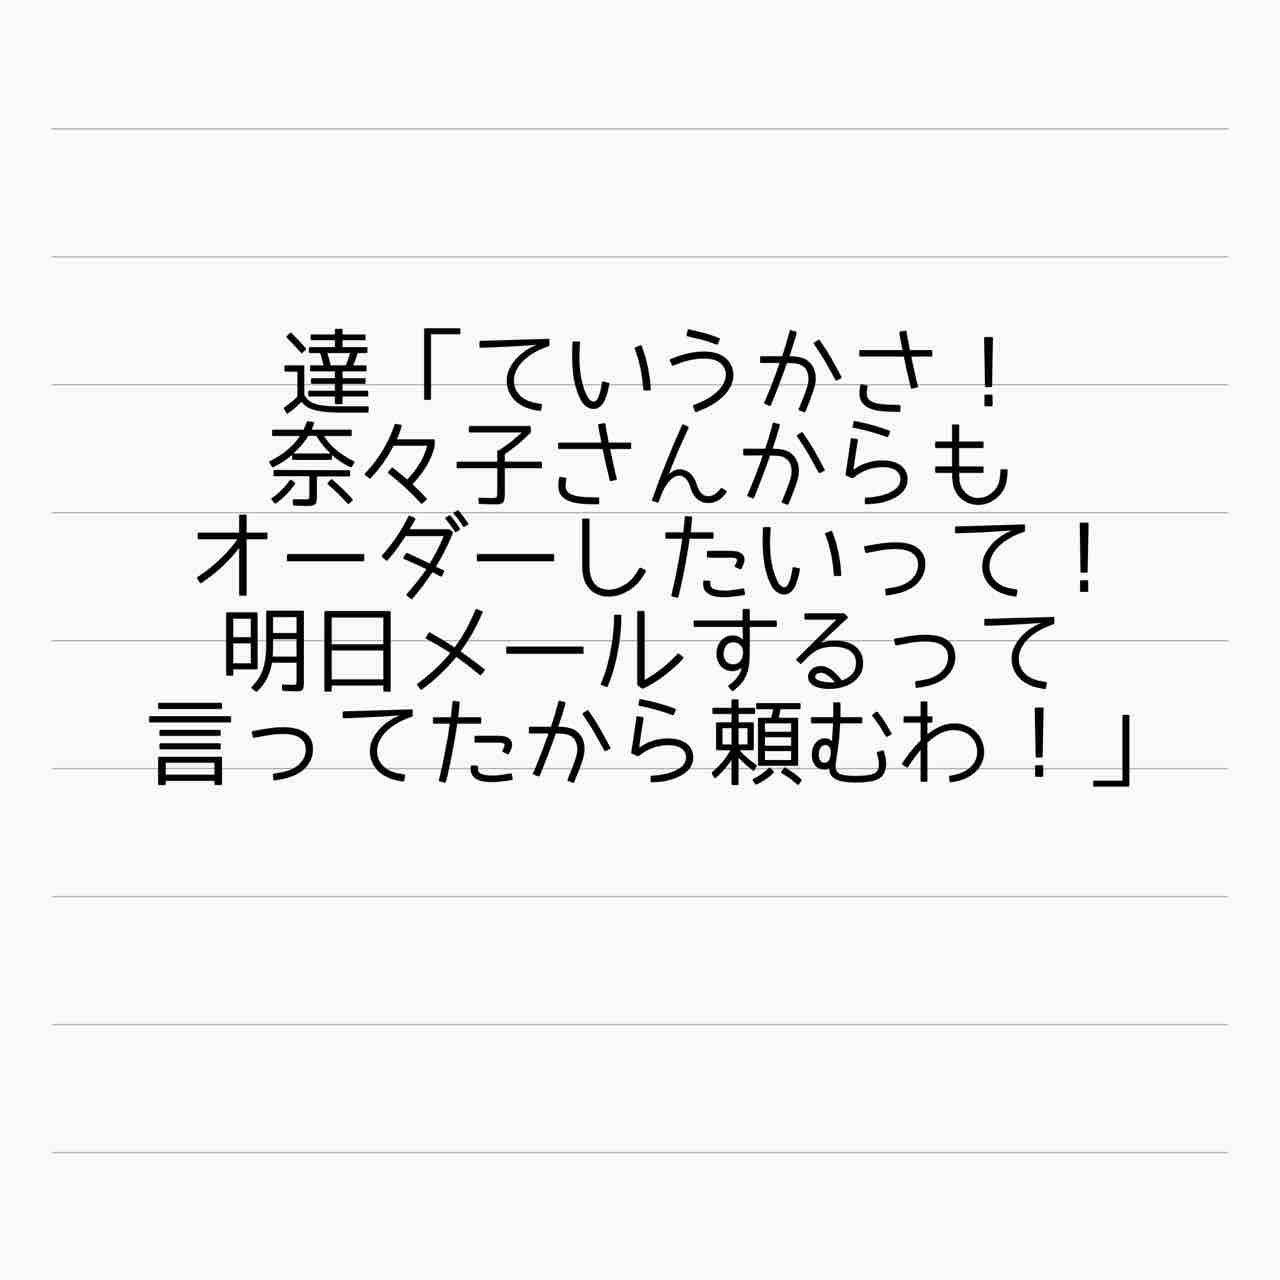 達「ていうかさ！
奈々子さんからも
オーダーしたいって！
明日メールするって
言ってたから頼むわ！」